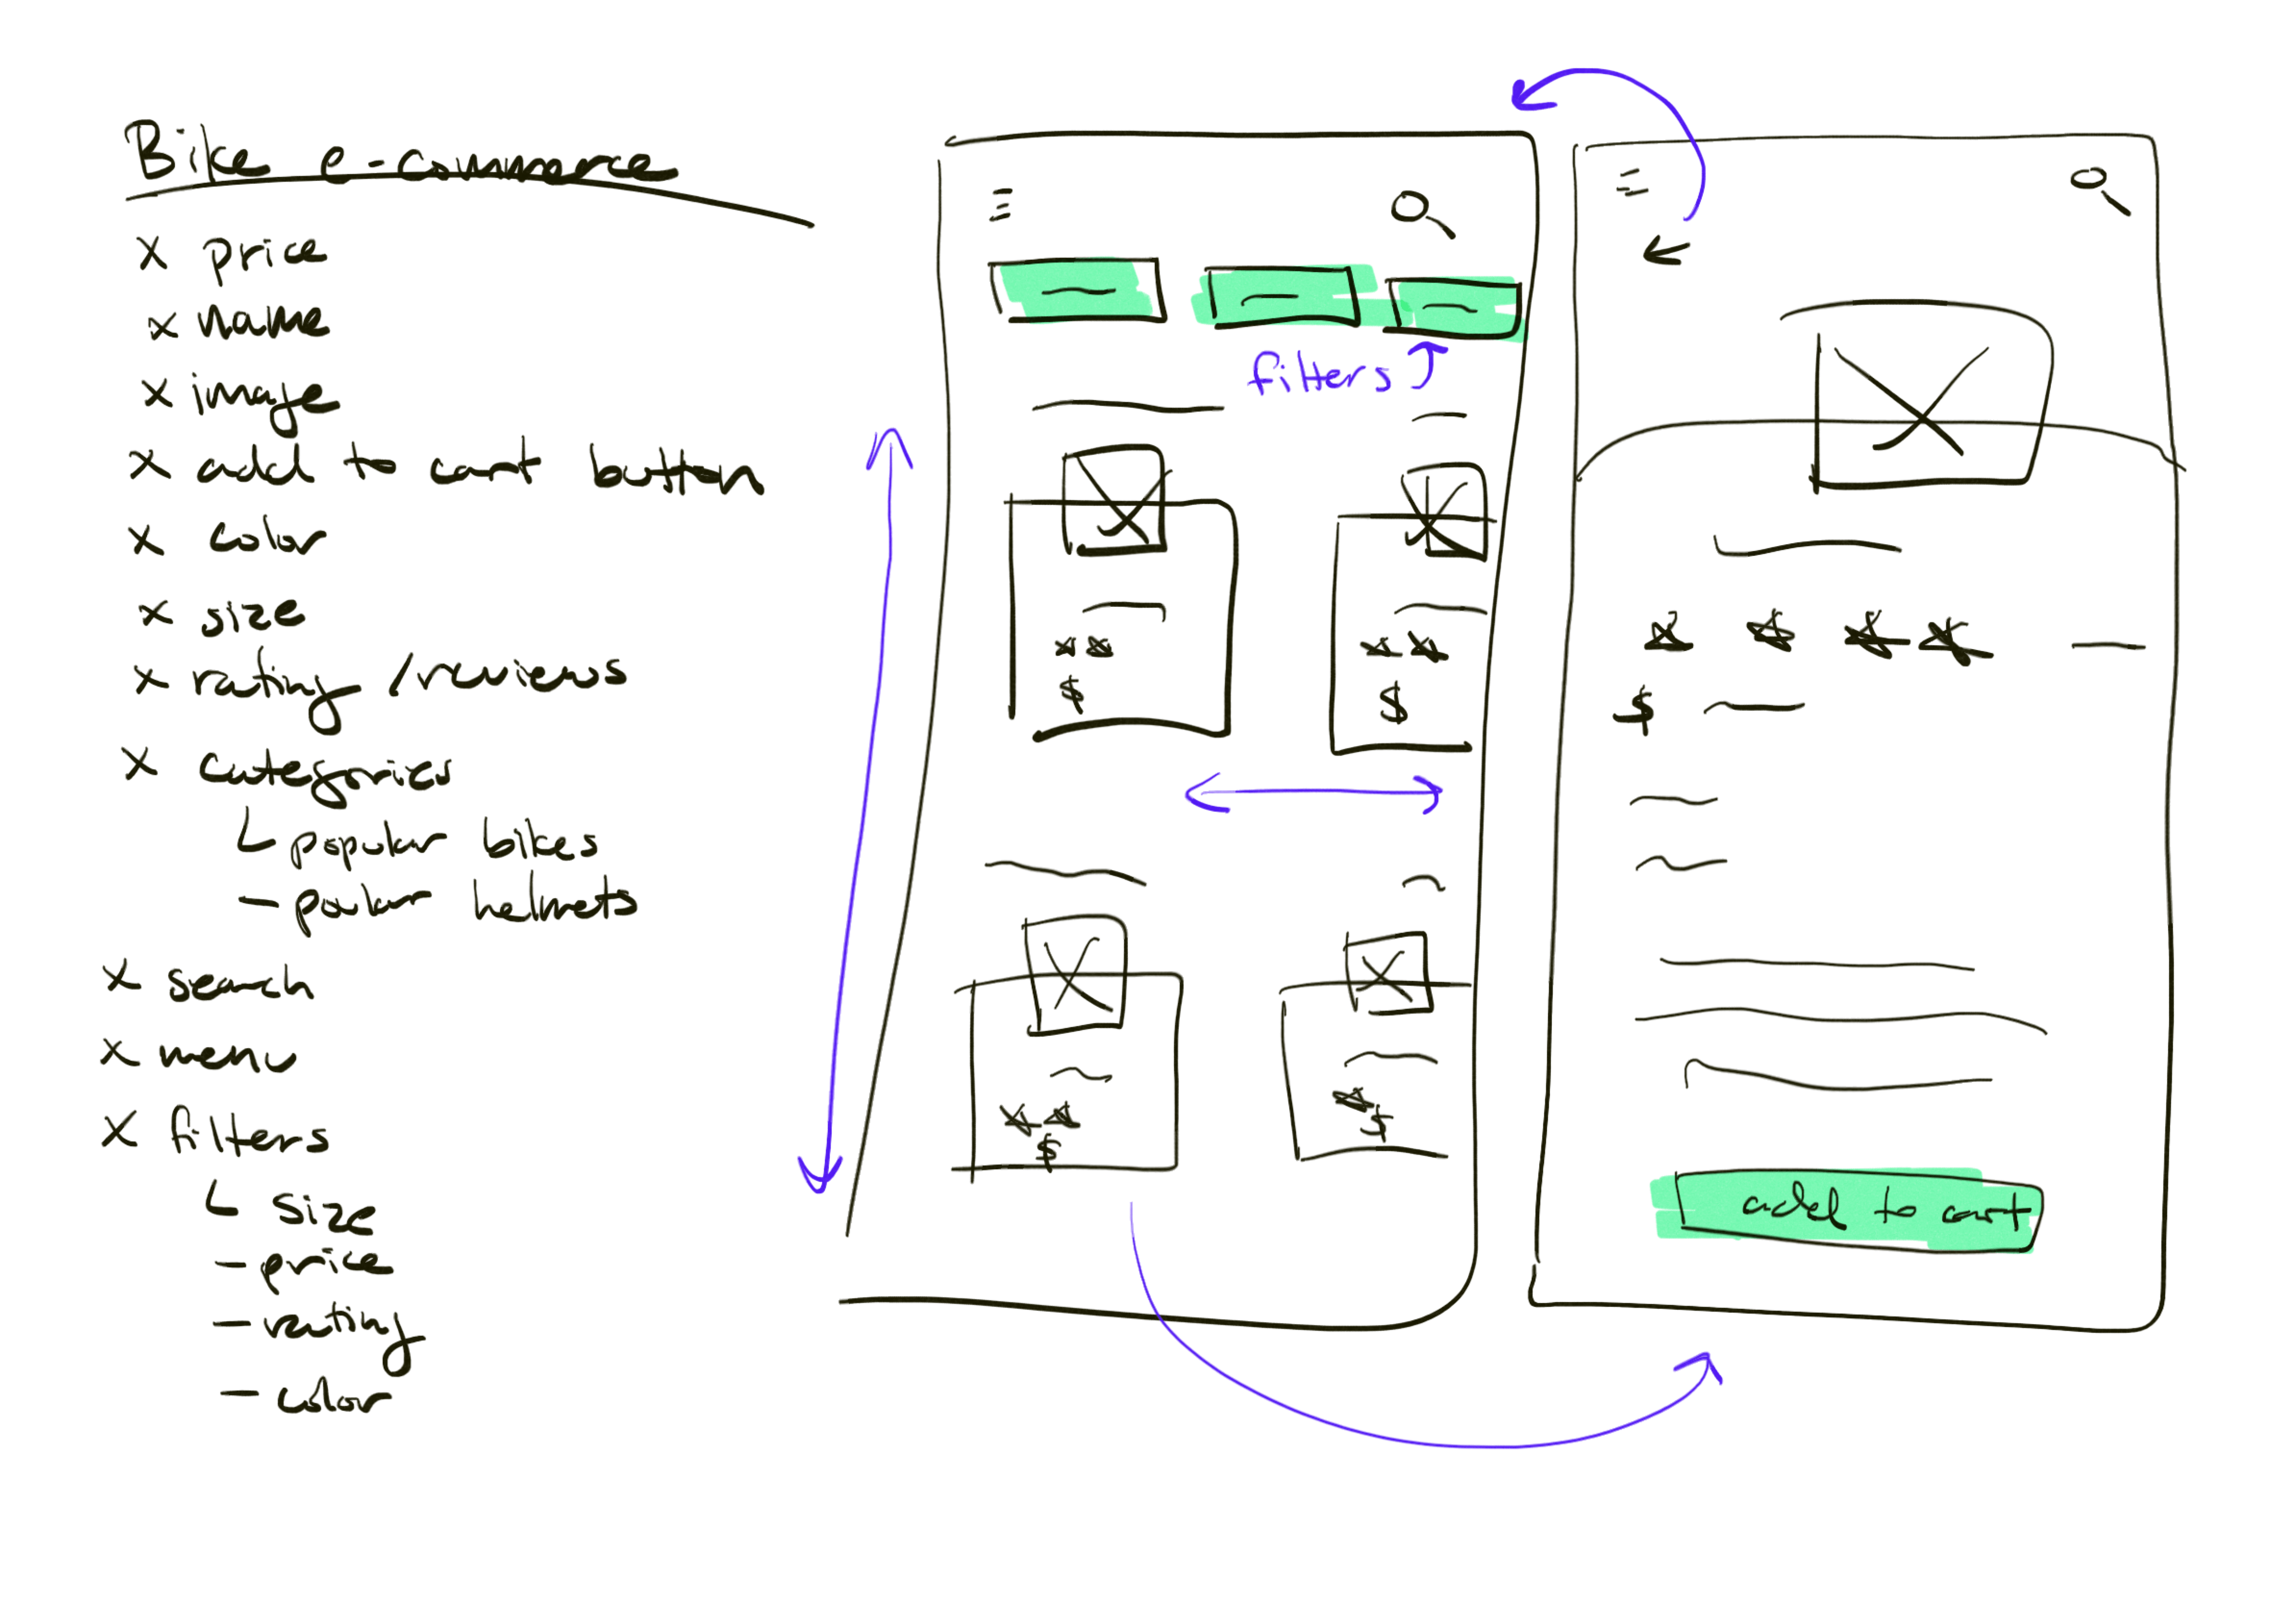 Bike e-commerce
x price
x name
x image
x add to cart button
x color
x size
x rating /reviews
x categories
└ popular bikes
- poular helmets
x search
x menu
x filters
└ size
- price
- rating
- color
filters
$
$
$
$
$
add to cart